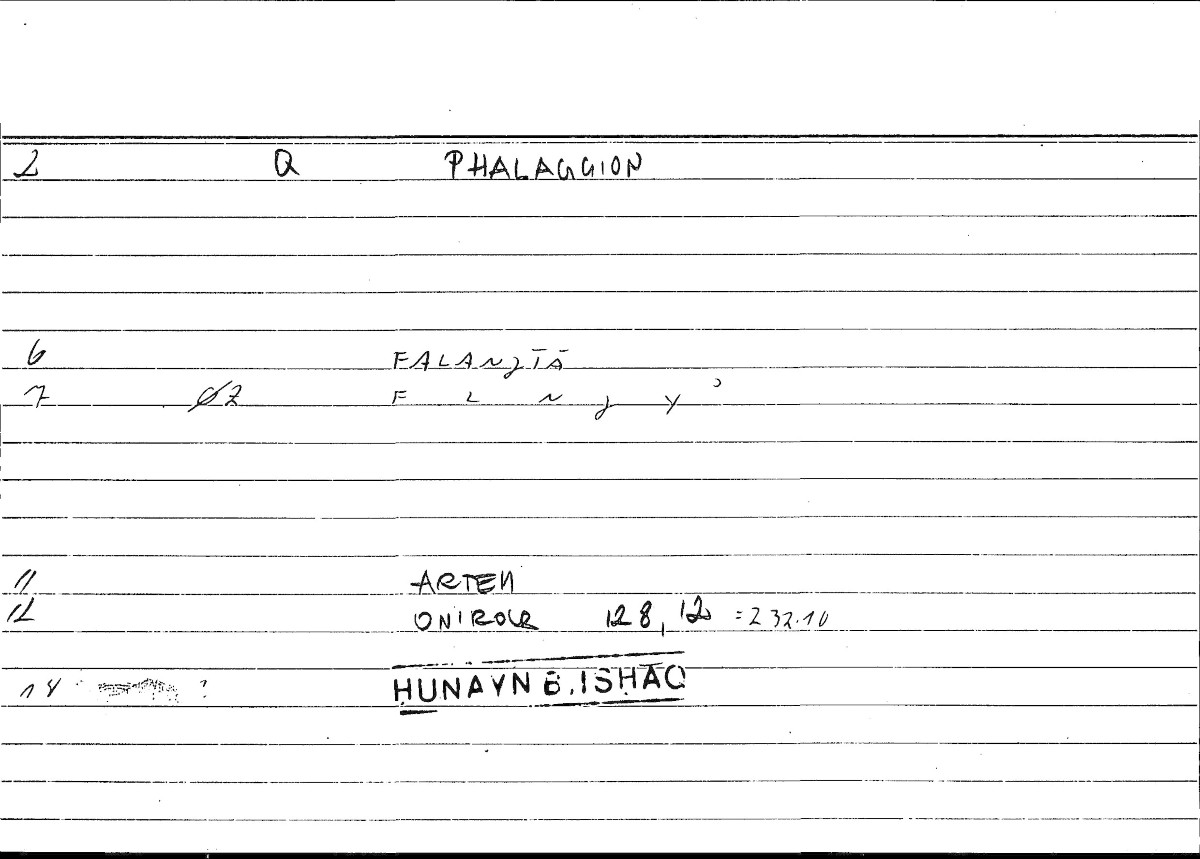 2 Q PHALAGGION
6 FALANJĪĀ
7 ØZ F L N J Y ʾ
11 ARTEM
12 ONIROCR 128,12 =232.10
14 ? HUNAYN B. ISHAQ